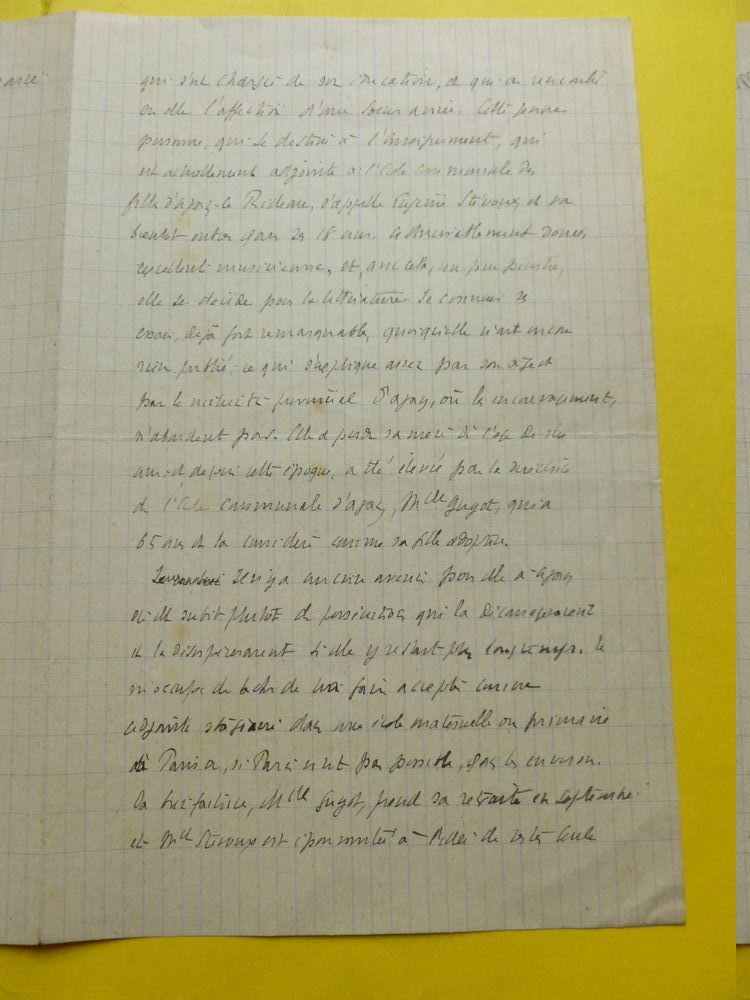 qui s'est chargée de son éducation, et qui a rencontré
en elle l'affection d'une soeur aînée. Cette jeune
personne, qui se destine à l'enseignement, qui
est actuellement adjointe à l'école communale des
filles d'Azay-le-Rideau, s'appelle Eugénie Stévoux et va
bientôt entrer dans ses 18 ans. Admirablement douée,
excellente musicienne, et, avec cela, un peu peintre,
elle se décide pour la littérature. Je connais ses
essais, déjà fort remarquables, quoiqu'elle n'ait encore
rien publié; ce qui s'explique assez par son âge et
par le milieu d'Azay, où les encouragements,
n'abondent pas. Elle a perdu sa mère dès l'âge de six
ans et depuis cette époque, a été élevée par la directrice
de l'école communale d'Azay, Mlle Guyot, qui a
65 ans et la considère comme sa fille adoptive.
Il n'y a aucun avenir pour elle à Azay
où elle subit plutôt des persécutions qui la décourageraient
et la désespéreraient si elle y restait plus longtemps. Je
m'occupe de tâcher de la faire accepter comme
adjointe stagiaire dans une école maternelle ou primaire
à Paris ou, si Paris n'est pas possible, dans les environs.
Sa bienfaitrice, Mlle Guyot, prend sa retraite en septembre
et Mlle Stévoux est épouvantée à l'idée de rester seule